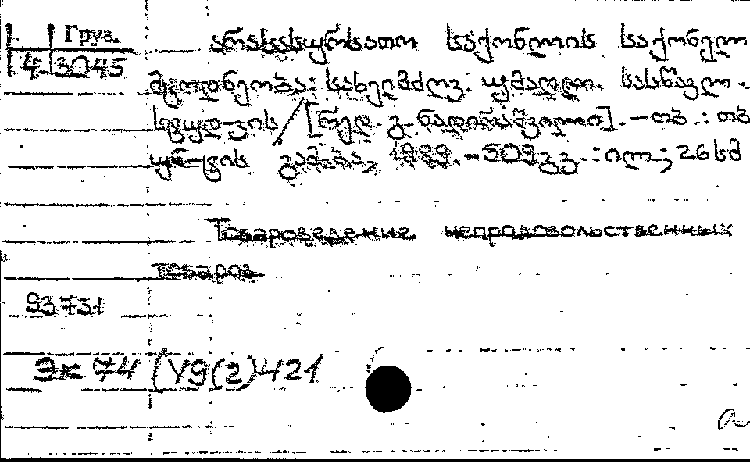 Груз.
4.3045
არასასურსათო საქონლის საქონელთ
მცოდნეობა: სახელმძღვ. უმაღლ. სასწავლ.
სტუდ-ვის / [რედ. გ. ნადირაშვილი]. – თბ.: თბ
უნ-ტის გამ-ბა, 1989. – 509 გვ.: ილ.; 26 სმ
Товароведение непродовольственных
товаров
93731
Эк 74 (У9(2)421